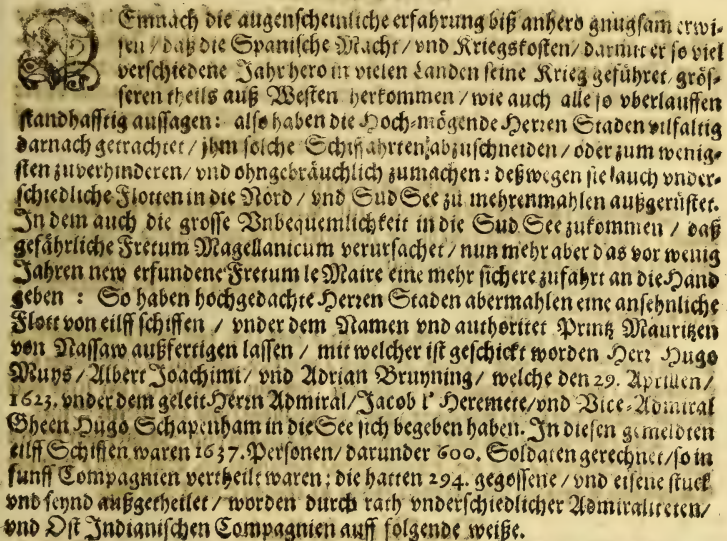 DEmnach die augenscheinliche erfahrung biß anhero gnugsam erwi-
sen / daß die Spanische Macht / vnd Kriegskosten / darmit er so viel
verschiedene Jahr hero in vielen Landen seine Krieg geführet / grös-
seren theils auß Westen herkommen / wie auch alle so vberlauffen
standhafftig aussagen: also haben die Hoch-mögende Herren Staden vilfaltig
darnach getrachtet / jhm solche Schiffahrten abzuschneiden / oder zum wenig-
sten zuverhinderen / vnd ohngebräuchlich zumachen: deßwegen sie auch vnder-
schiedliche Flotten in die Nord / vnd Sud See zu mehrenmahlen außgerüstet.
In dem auch die grosse Vnbequemlichkeit in die Sud See zukommen / daß
gefährliche Fretum Magellanicum verursachet / nun mehr aber das vor wenig
Jahren new erfundene Fretum le Maire eine mehr sichere zufahrt an die Hand
geben : So haben hochgedachte Herren Staden abermahlen eine ansehnliche
Flott von eilff schiffen / vnder dem Namen vnd authoritet Printz Mauritzen
von Nassaw außfertigen lassen / mit welcher ist geschickt worden Herr Hugo
Muys / Albert Joachimi / vnd Adrian Bruyning / welche den 29. Aprillen /
1623. vnder dem geleit Herrn Admiral / Jacob l' Heremete / vnd Vice-Admiral
Gheen Hugo Schapenham in die See sich begeben haben. In diesen gemeldten
eilff Schiffen waren 1637. Personen / darunder 600. Soldaten gerechnet / so in
funff Compagnien vertheilt waren; die hatten 294. gegossene / vnd eisene stuck
vnd seynd außgetheilet / worden durch rath vnderschiedlicher Admiraliteten /
vnd Ost Indianischen Compagnien auff folgende weiße.